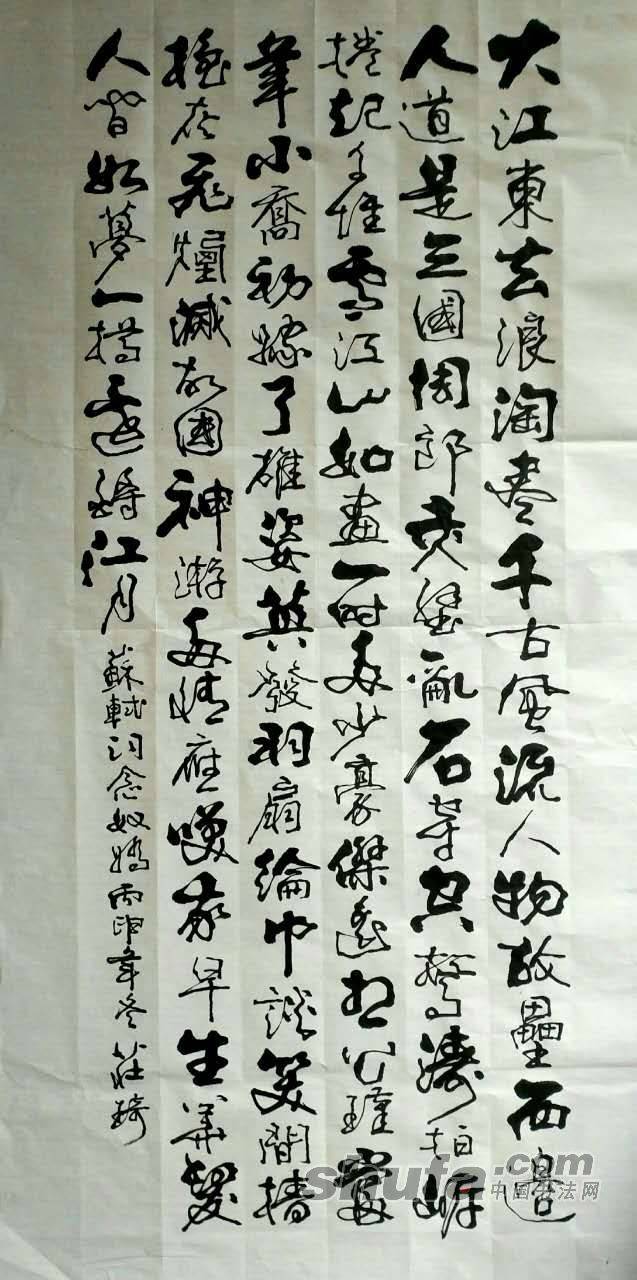 大江東去浪淘盡千古風流人物故壘西邊
人道是三國周郎赤壁亂石穿空驚濤拍岸
捲起千堆雪江山如畫一時多少豪傑遙想公瑾當
年小喬初嫁了雄姿英發羽扇綸巾談笑間檣
櫓灰飛煙滅故國神遊多情應嘆我早生華髮
人間如夢一樽還酹江月 蘇軾詞念奴嬌丙申年冬莊琦
shufa.com
中国书法网